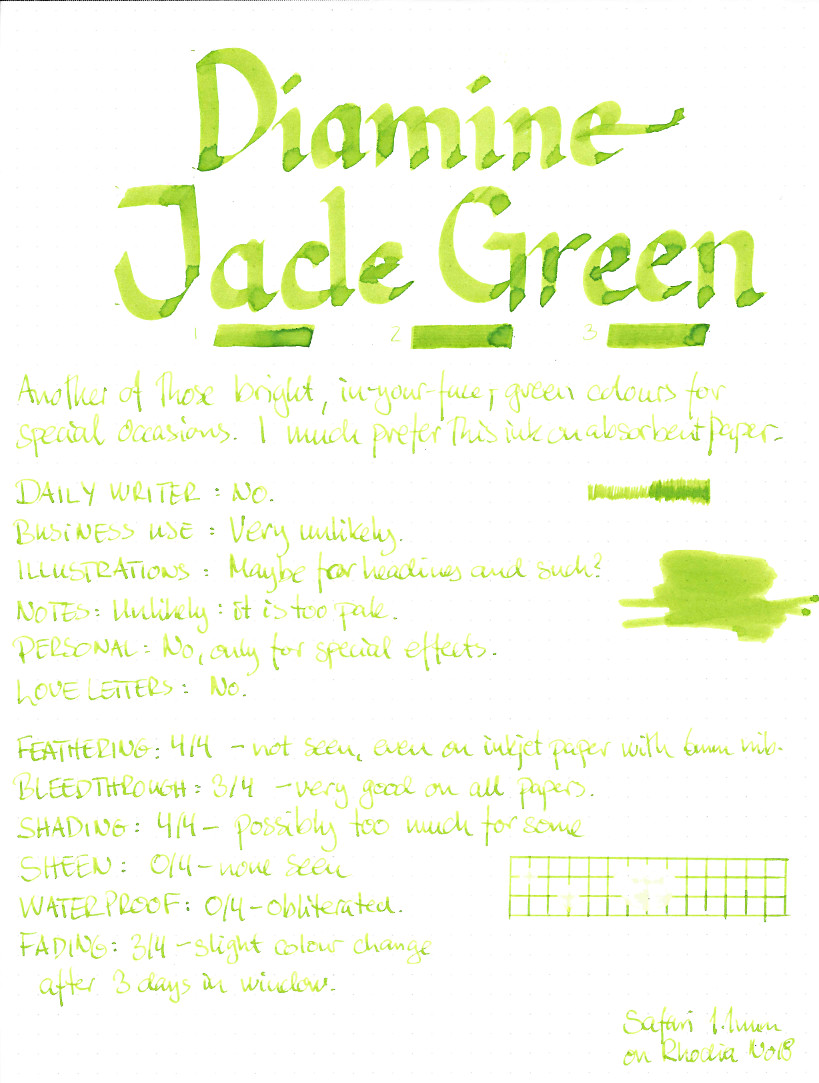 Diamine
Jade Green
1 2 3
Another of those bright, in-your-face, green colours for
special occasions. I much prefer this ink on absorbent paper.
DAILY WRITER: No.
BUSINESS USE: Very unlikely.
ILLUSTRATIONS: Maybe for headlines and such?
NOTES: Unlikely: it is too pale.
PERSONAL: No, only for special effects.
LOVE LETTERS: No.
FEATHERING: 4/4 - not seen, even on inkjet paper with 6mm nib.
BLEEDTHROUGH: 3/4 - very good on all papers.
SHADING: 4/4 - possibly too much for some
SHEEN: 0/4 - none seen
WATERPROOF: 0/4 - obliterated.
FADING: 3/4 - slight colour change
after 3 days in window.
Safari 1.1mm
on Rhodia No18